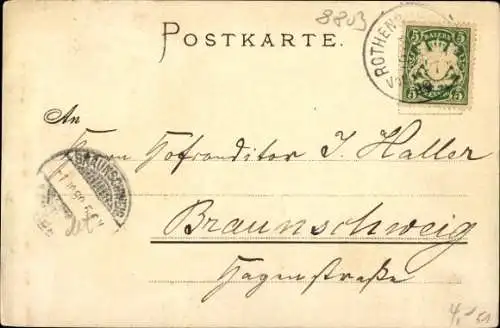 8803
POSTKARTE.
ROTHENB
BAYERN
5 5
5 5
An
Herrn Hofconditor J. Haller
BRAUNSCHWEIG
Braunschweig
Hagenstraße